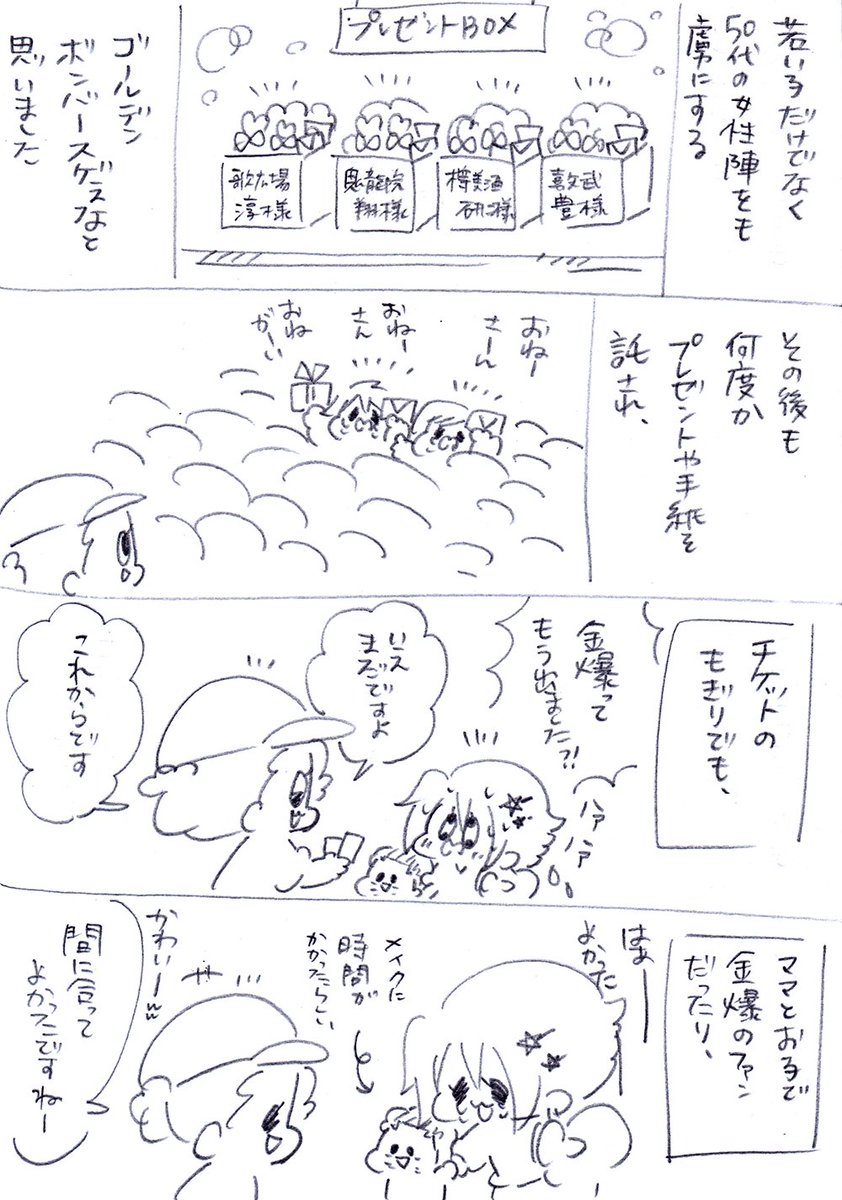 若い子だけでなく
50代の女性陣をも
虜にする
プレゼントBOX
喜矢武
豊様
樽美酒
研二様
鬼龍院
翔様
歌広場
淳様
ゴールデン
ボンバースゲェなと
思いました
その後も
何度か
プレゼントや手紙を
託され、
おねー
さーん
おねー
さん
おね
がーい
チケットの
もぎりでも、
金爆って
もう出ました?!
ハァ
ハァ
いえ
まだですよ
これからです
ママとお子で
金爆のファン
だったり、
はぁー
よかった
メイクに
時間が
かかったらしい
かわいーw
間に合って
よかったですねー